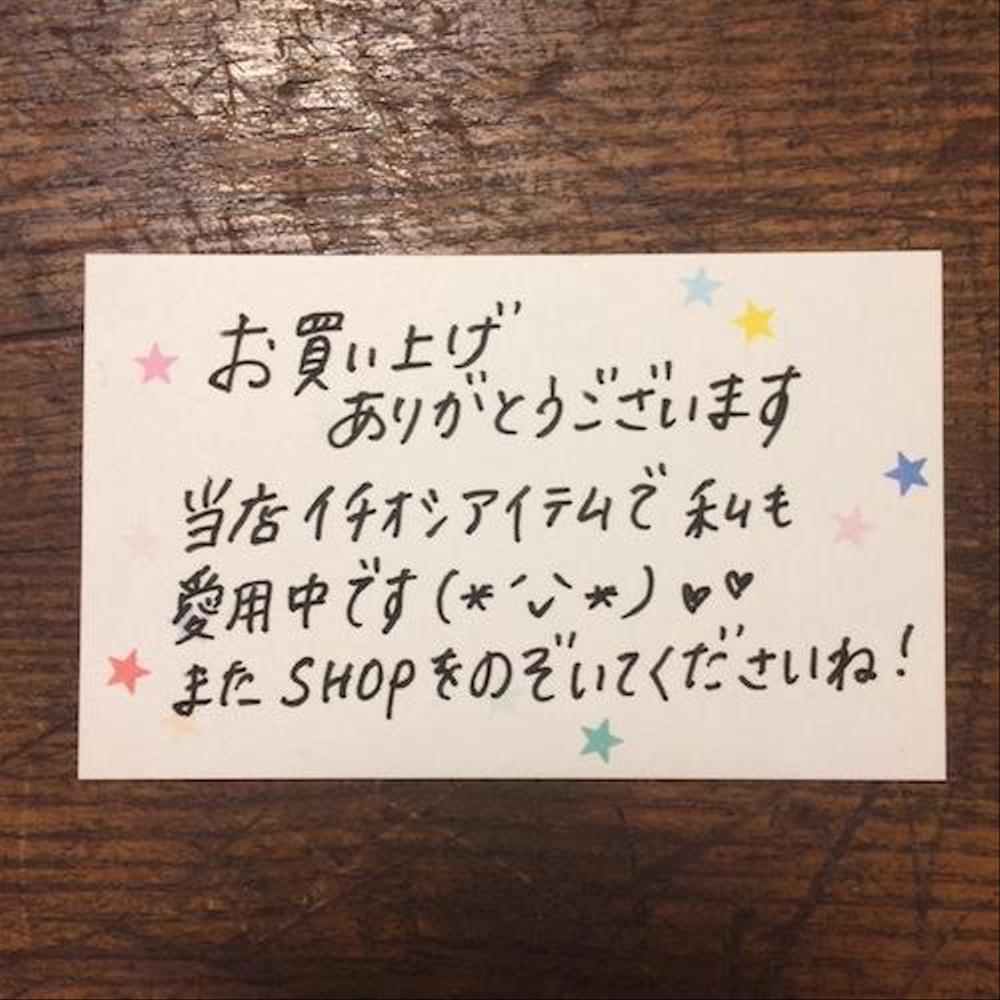 お買い上げ
ありがとうございます
当店イチオシアイテムで私も
愛用中です(*´◡`*)♥♥
またSHOPをのぞいてくださいね!